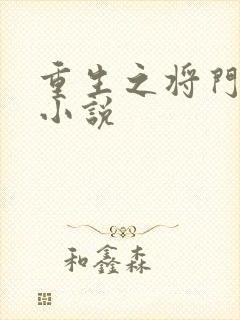 重生之将门
小说
和鑫森